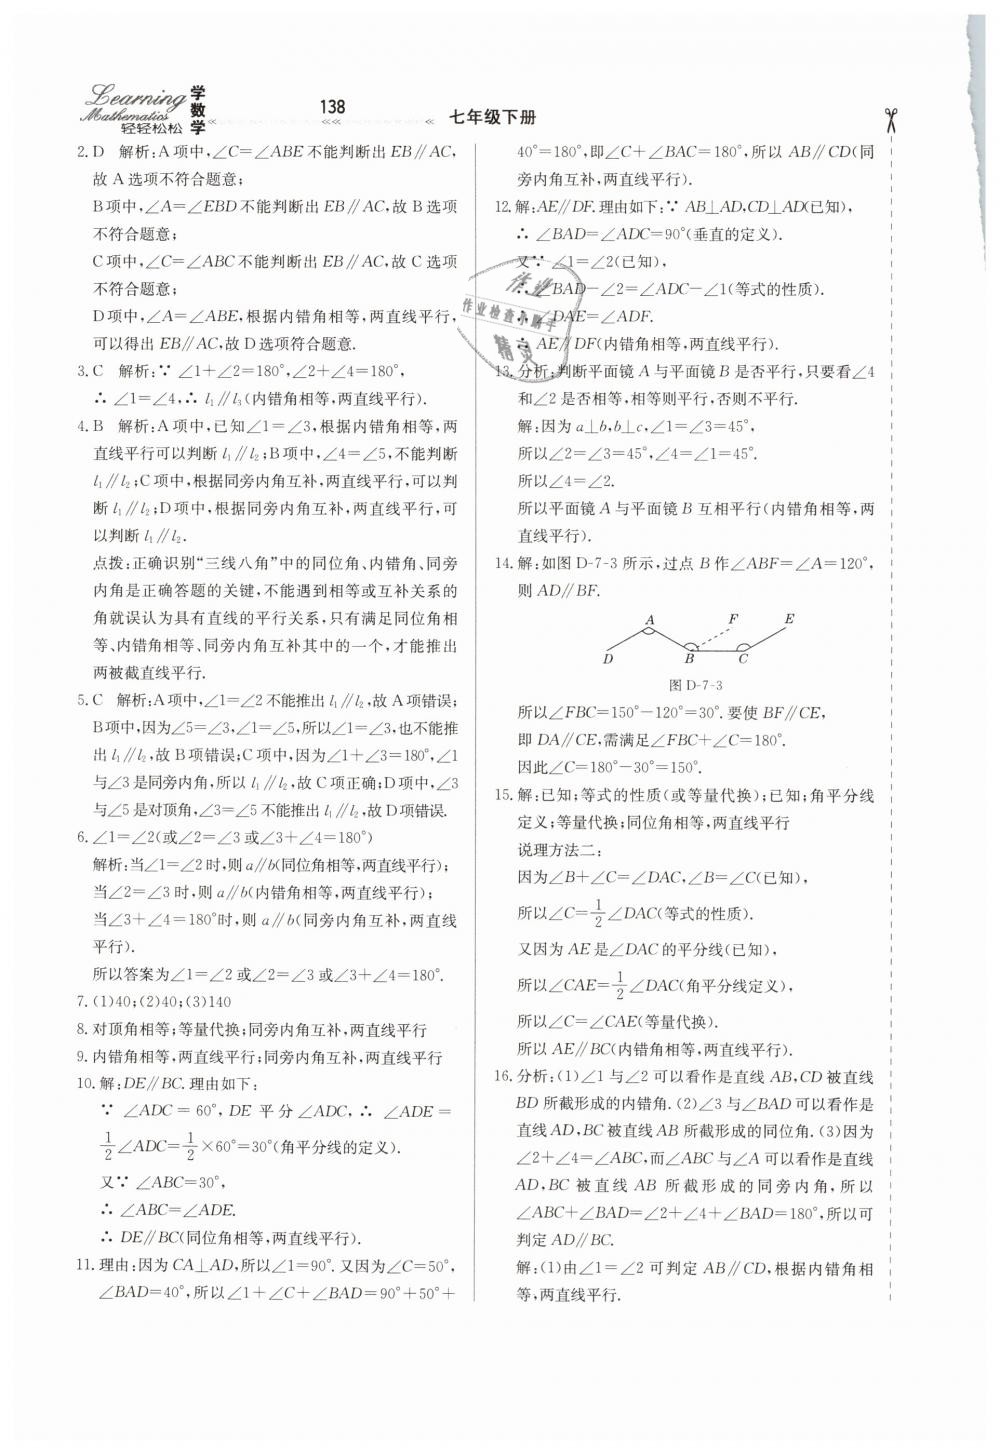 Learning
Mathematics
轻轻松松
学数学
138
七年级下册
2. D 解析:A项中,∠C=∠ABE不能判断出EB∥AC,
故A选项不符合题意;
B项中,∠A=∠EBD不能判断出EB∥AC,故B选项
不符合题意;
C项中,∠C=∠ABC不能判断出EB∥AC,故C选项
不符合题意;
D项中,∠A=∠ABE,根据内错角相等,两直线平行,
可以得出EB∥AC,故D选项符合题意.
3. C 解析:∵ ∠1+∠2=180°,∠2+∠4=180°,
∴ ∠1=∠4,∴ l₁∥l₃(内错角相等,两直线平行).
4. B 解析:A项中,已知∠1=∠3,根据内错角相等,两
直线平行可以判断l₁∥l₂;B项中,∠4=∠5,不能判断
l₁∥l₂;C项中,根据同旁内角互补,两直线平行,可以判
断l₁∥l₂;D项中,根据同旁内角互补,两直线平行,可
以判断l₁∥l₂.
点拨:正确识别“三线八角”中的同位角、内错角、同旁
内角是正确答题的关键,不能遇到相等或互补关系的
角就误认为具有直线的平行关系,只有满足同位角相
等、内错角相等、同旁内角互补其中的一个,才能推出
两被截直线平行.
5. C 解析:A项中,∠1=∠2不能推出l₁∥l₂,故A项错误;
B项中,因为∠5=∠3,∠1=∠5,所以∠1=∠3,也不能推
出l₁∥l₂,故B项错误;C项中,因为∠1+∠3=180°,∠1
与∠3是同旁内角,所以l₁∥l₂,故C项正确;D项中,∠3
与∠5是对顶角,∠3=∠5不能推出l₁∥l₂,故D项错误.
6. ∠1=∠2(或∠2=∠3或∠3+∠4=180°)
解析:当∠1=∠2时,则a∥b(同位角相等,两直线平行);
当∠2=∠3时,则a∥b(内错角相等,两直线平行);
当∠3+∠4=180°时,则a∥b(同旁内角互补,两直线
平行).
所以答案为∠1=∠2或∠2=∠3或∠3+∠4=180°.
7. (1)40;(2)40;(3)140
8. 对顶角相等;等量代换;同旁内角互补,两直线平行
9. 内错角相等,两直线平行;同旁内角互补,两直线平行
10. 解:DE∥BC.理由如下:
∵ ∠ADC=60°,DE平分∠ADC,∴ ∠ADE=
1/2∠ADC=1/2×60°=30°(角平分线的定义).
又∵ ∠ABC=30°,
∴ ∠ABC=∠ADE.
∴ DE∥BC(同位角相等,两直线平行).
11. 理由:因为CA⊥AD,所以∠1=90°.又因为∠C=50°,
∠BAD=40°,所以∠1+∠C+∠BAD=90°+50°+
40°=180°,即∠C+∠BAC=180°,所以AB∥CD(同
旁内角互补,两直线平行).
12. 解:AE∥DF.理由如下:∵ AB⊥AD,CD⊥AD(已知),
∴ ∠BAD=∠ADC=90°(垂直的定义).
又∵ ∠1=∠2(已知),
∴ ∠BAD-∠2=∠ADC-∠1(等式的性质).
∴ ∠DAE=∠ADF.
∴ AE∥DF(内错角相等,两直线平行).
作业
作业检查小助手
精灵
13. 分析:判断平面镜A与平面镜B是否平行,只要看∠4
和∠2是否相等,相等则平行,否则不平行.
解:因为a⊥b,b⊥c,∠1=∠3=45°,
所以∠2=∠3=45°,∠4=∠1=45°.
所以∠4=∠2.
所以平面镜A与平面镜B互相平行(内错角相等,两
直线平行).
14. 解:如图D-7-3所示,过点B作∠ABF=∠A=120°,
则AD∥BF.
A F E
D B C
图D-7-3
所以∠FBC=150°-120°=30°.要使BF∥CE,
即DA∥CE,需满足∠FBC+∠C=180°.
因此∠C=180°-30°=150°.
15. 解:已知;等式的性质(或等量代换);已知;角平分线
定义;等量代换;同位角相等,两直线平行
说理方法二:
因为∠B+∠C=∠DAC,∠B=∠C(已知),
所以∠C=1/2∠DAC(等式的性质).
又因为AE是∠DAC的平分线(已知),
所以∠CAE=1/2∠DAC(角平分线定义),
所以∠C=∠CAE(等量代换).
所以AE∥BC(内错角相等,两直线平行).
16. 分析:(1)∠1与∠2可以看作是直线AB,CD被直线
BD所截形成的内错角.(2)∠3与∠BAD可以看作是
直线AD,BC被直线AB所截形成的同位角.(3)因为
∠2+∠4=∠ABC,而∠ABC与∠A可以看作是直线
AD,BC被直线AB所截形成的同旁内角,所以
∠ABC+∠BAD=∠2+∠4+∠BAD=180°,所以可
判定AD∥BC.
解:(1)由∠1=∠2可判定AB∥CD,根据内错角相
等,两直线平行.